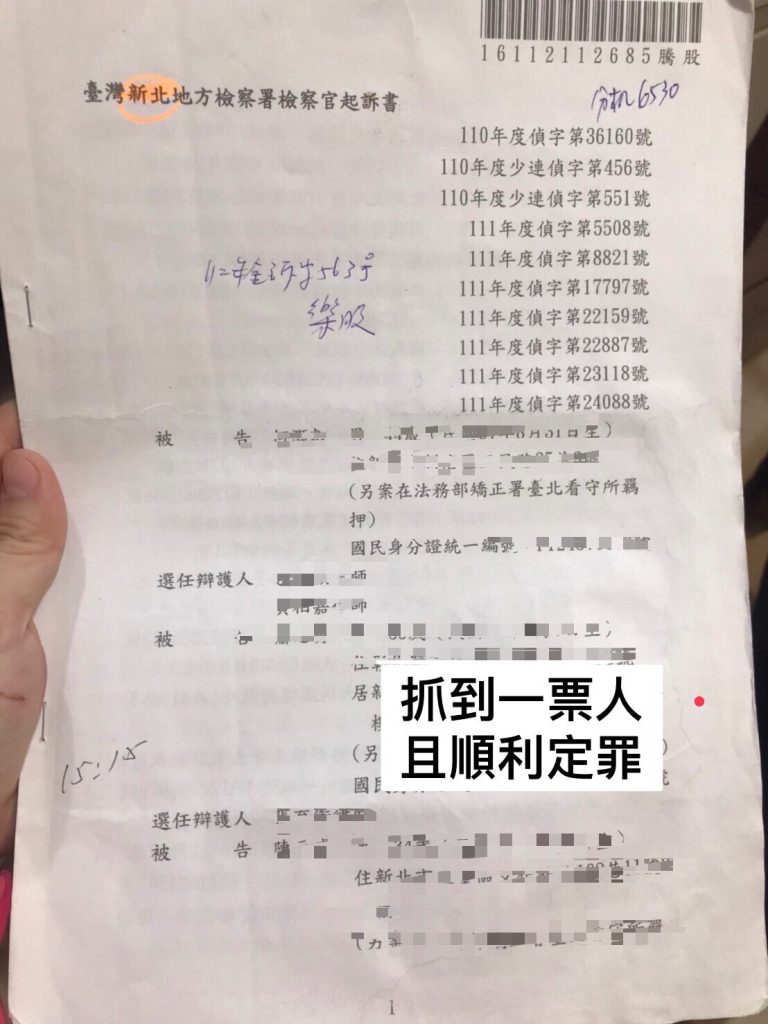 16112112685騰股
臺灣新北地方檢察署檢察官起訴書
分机6530
110年度偵字第36160號
110年度少連偵字第456號
110年度少連偵字第551號
111年度偵字第5508號
111年度偵字第8821號
111年度偵字第17797號
111年度偵字第22159號
111年度偵字第22887號
111年度偵字第23118號
111年度偵字第24088號
樂股
被告
(另案在法務部矯正署臺北看守所羈
押)
國民身分證統一編號
選任辯護人 師
師
被告
居新
抓到一票人
且順利定罪
(另
國民
15:15
選任辯護人
被告 陳
住新北市
1